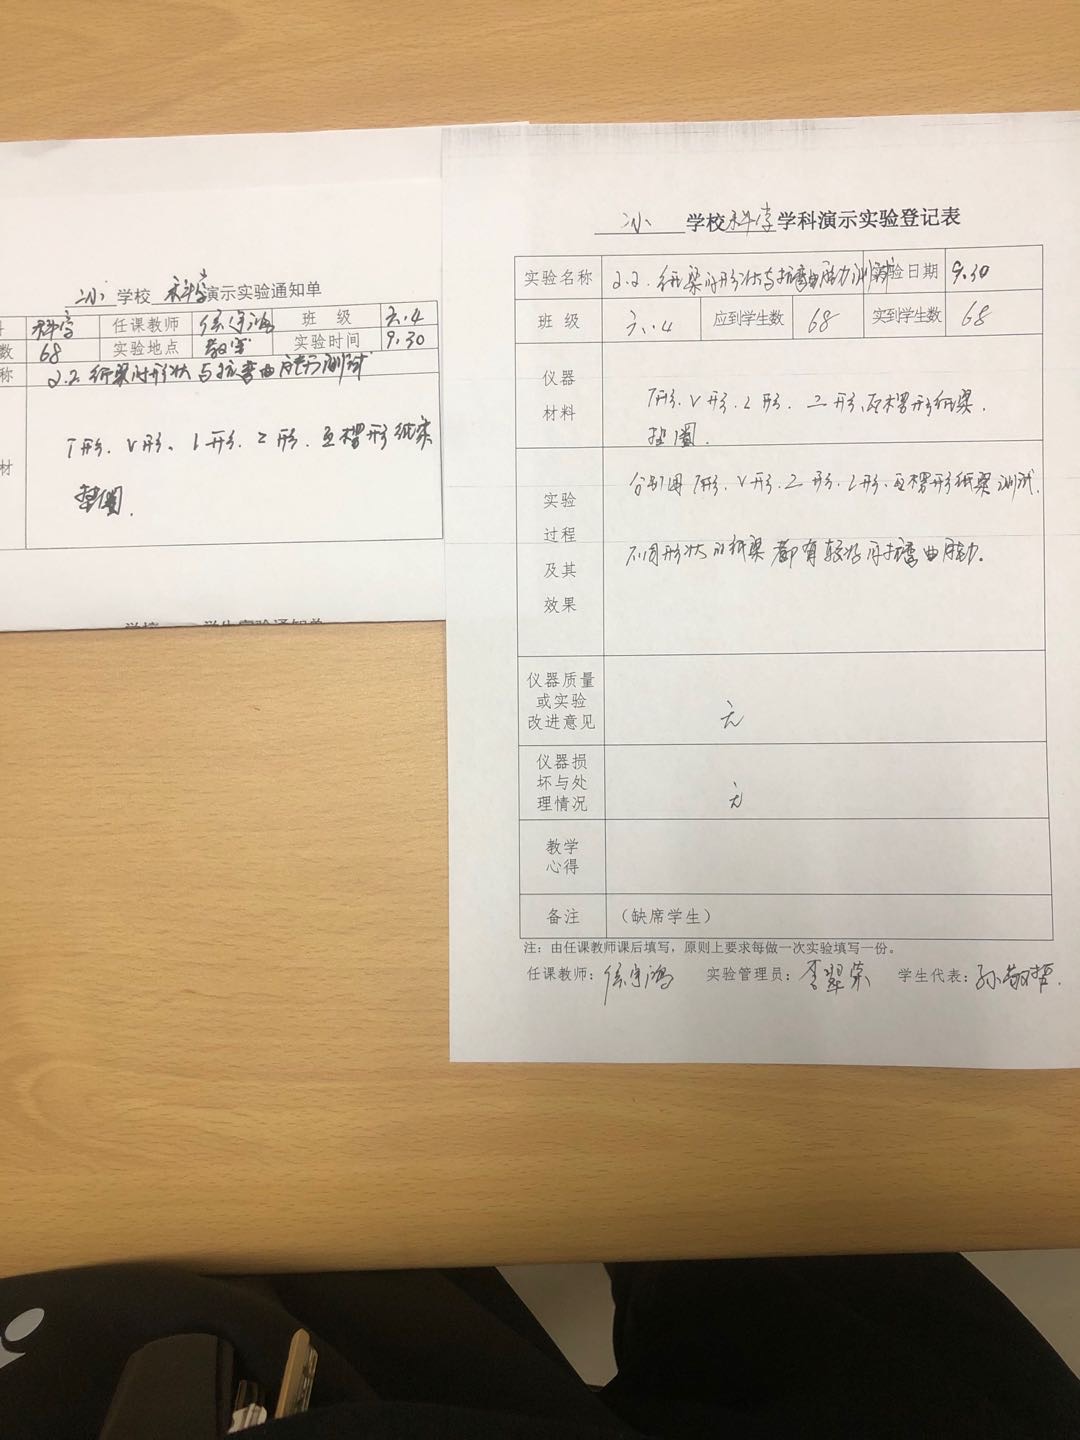 学校 科学 演示实验通知单
科学 任课教师 班 级 六.4
数 68 实验地点 教室 实验时间 9.30
称 2.2 纸梁的形状与抗弯曲能力测试
材 T形. V形、L形. 工形. 瓦楞形纸梁
垫圈.
学生实验通知单
学校 科学 学科演示实验登记表
实验名称 2.2. 纸梁的形状与抗弯曲能力测试 实验日期 9.30
班 级 六.4 应到学生数 68 实到学生数 68
仪器
材料
T形. V形. L形. 工形、瓦楞形纸梁.
垫圈.
实验
过程
及其
效果
分别用T形. V形. 工形. L形. 瓦楞形纸梁测试.
不同形状的纸梁都有较好的抗弯曲能力.
仪器质量
或实验
改进意见
无
仪器损
坏与处
理情况
无
教学
心得
备注 （缺席学生）
注：由任课教师课后填写，原则上要求每做一次实验填写一份。
任课教师： 实验管理员：李翠荣 学生代表：孙敬哲.